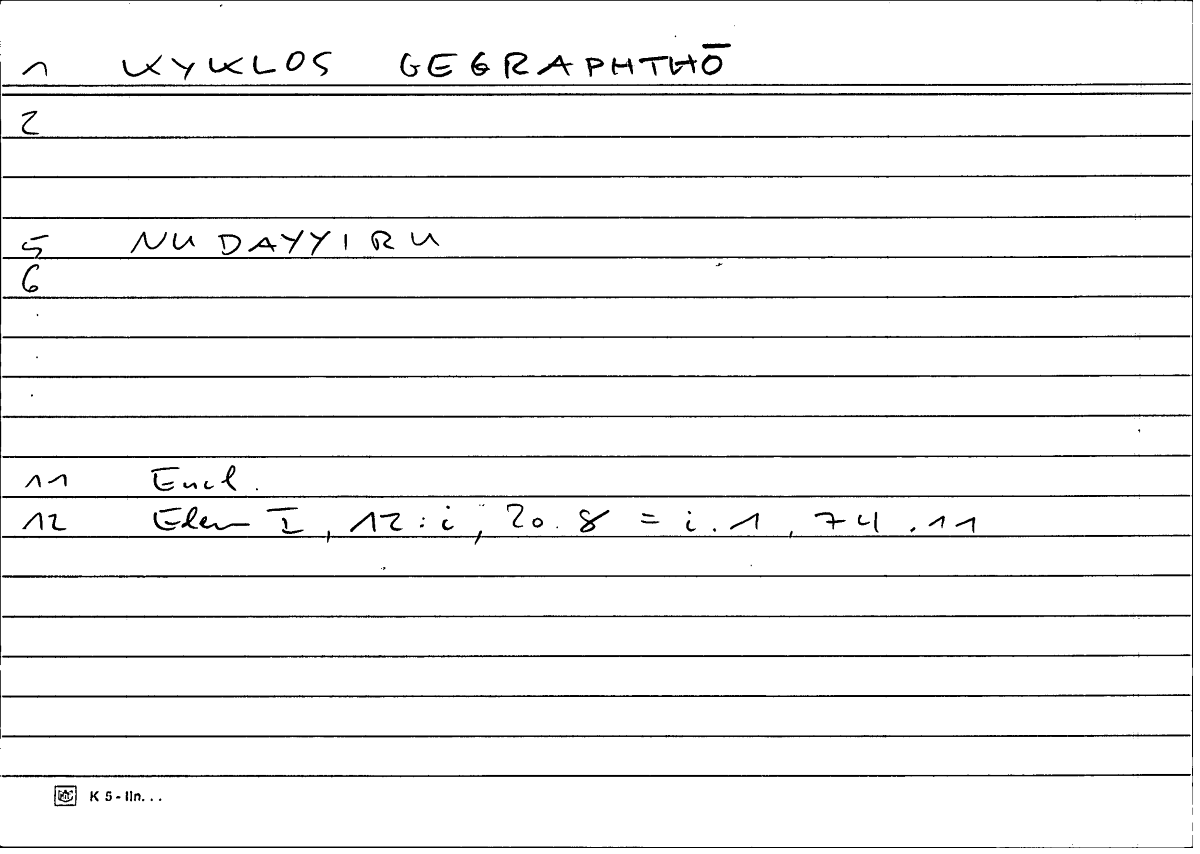 1 KYKLOS GEGRAPHTHŌ
2
5 NUDAYYIRU
6
.
.
.
11 Eucl.
12 Elem I, 12:i, 20.8 = i.1, 74.11
K 5 - lin. . .